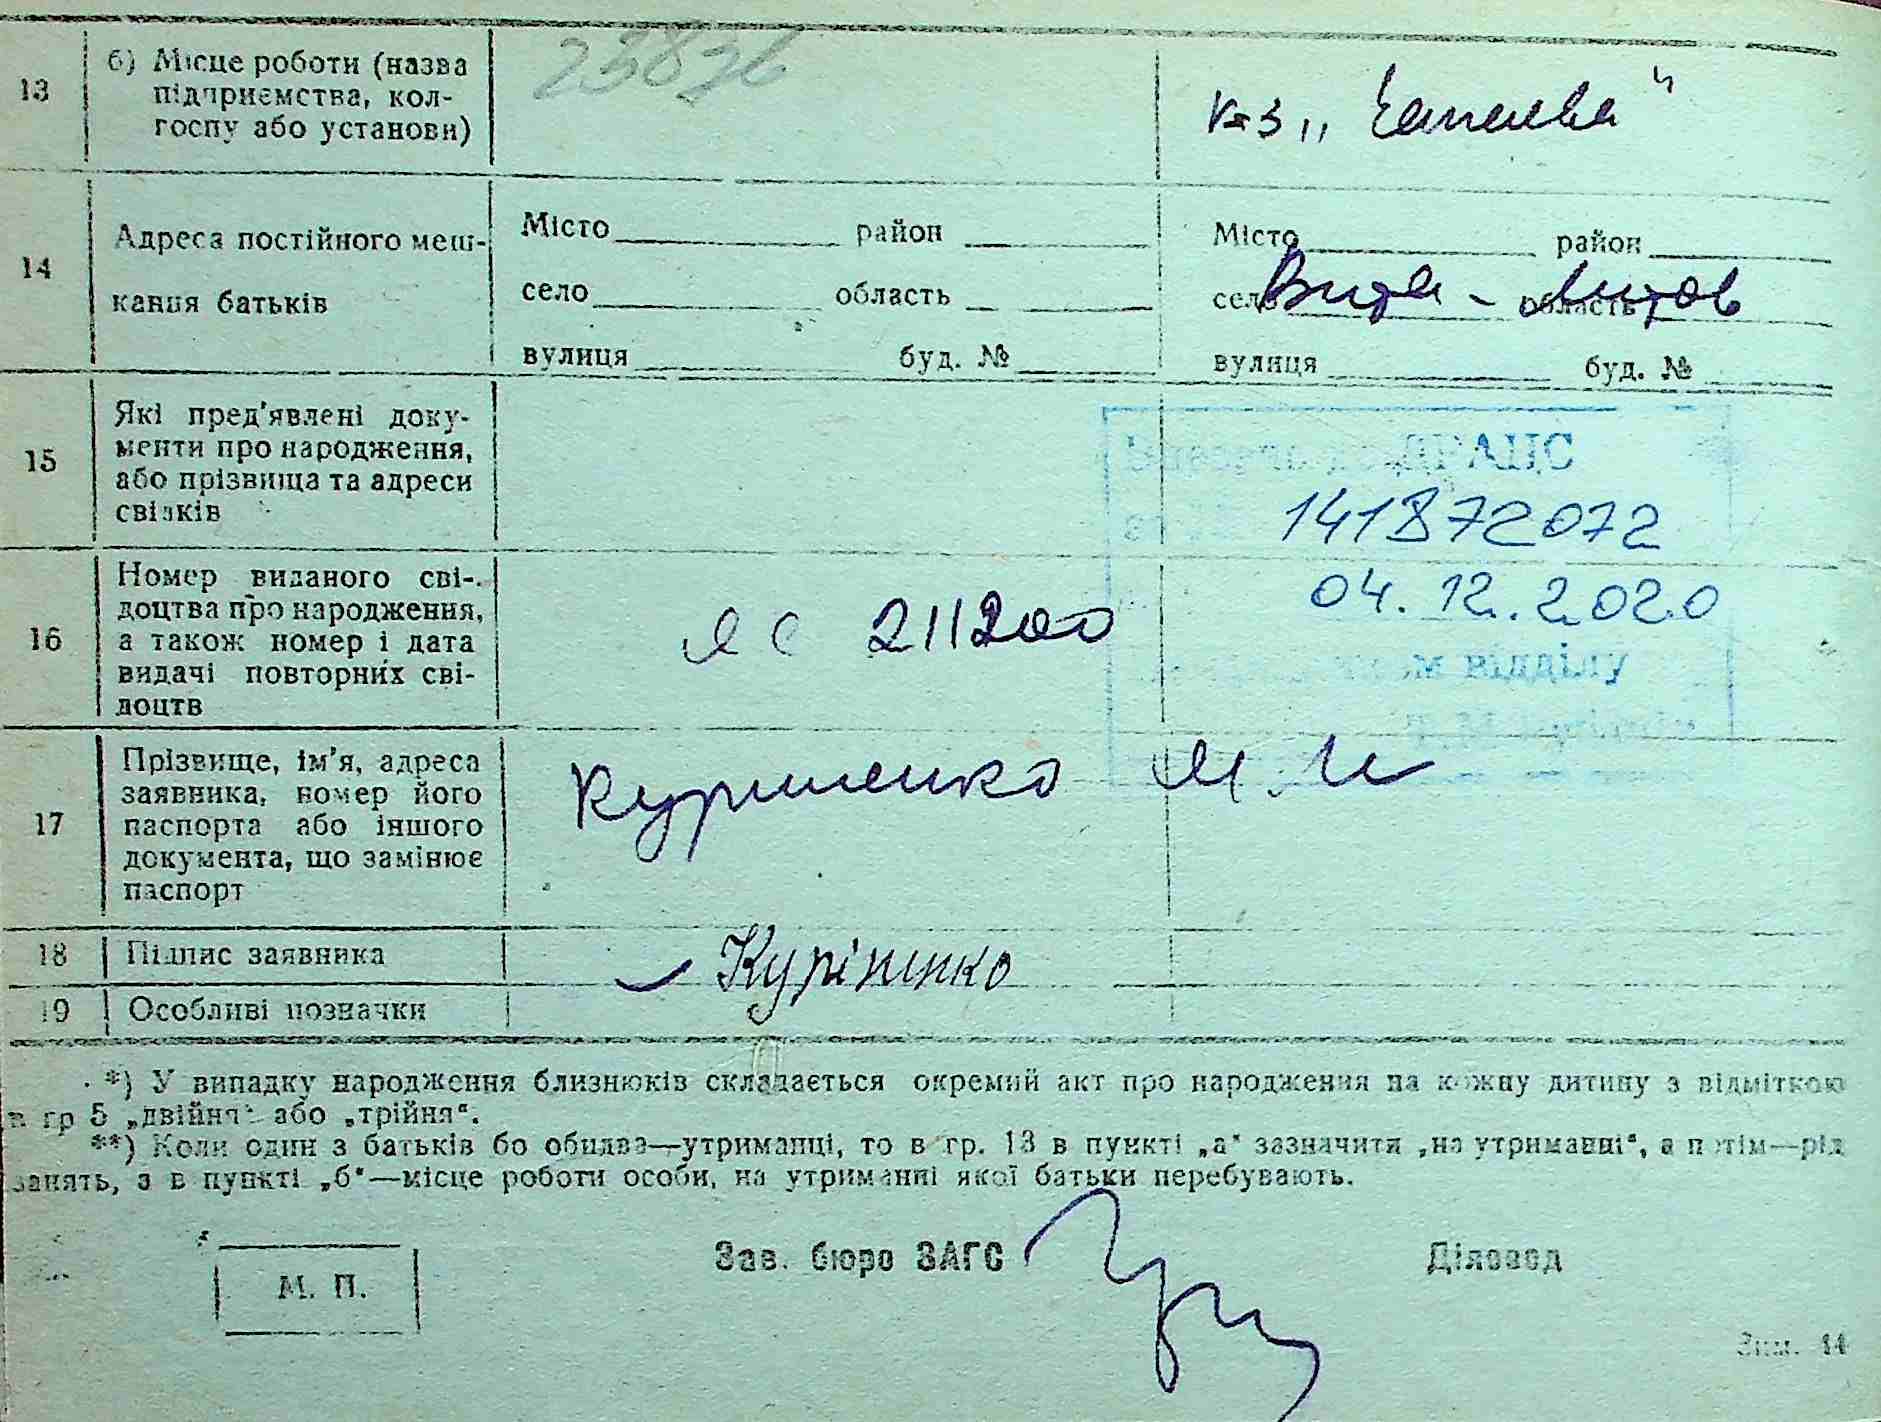 23876
13
б) Місце роботи (назва
підприємства, кол-
госпу або установи)
к-з „ Чапаєва "
14
Адреса постійного меш-
кання батьків
Місто район
село область
вулиця буд. №
Місто район
село Вита - Литов область
вулиця буд. №
15
Які пред'явлені доку-
менти про народження,
або прізвища та адреси
свідків
ДРАЦС
141872072
04.12.2020
відділу
16
Номер виданого сві-
доцтва про народження,
а також номер і дата
видачі повторних сві-
доцтв
ЯС 211200
17
Прізвище, ім'я, адреса
заявника, номер його
паспорта або іншого
документа, що замінює
паспорт
18
Підпис заявника
19
Особливі позначки
*) У випадку народження близнюків складається окремий акт про народження на кожну дитину з відміткою
в гр 5 „двійня“ або „трійня“.
**) Коли один з батьків бо обидва—утриманці, то в гр. 13 в пункті „а“ зазначити „на утриманні“, а потім—рід
занять, а в пункті „б“—місце роботи особи, на утриманні якої батьки перебувають.
М. П.
Зав. бюро ЗАГС
Діловод
Зам. 14